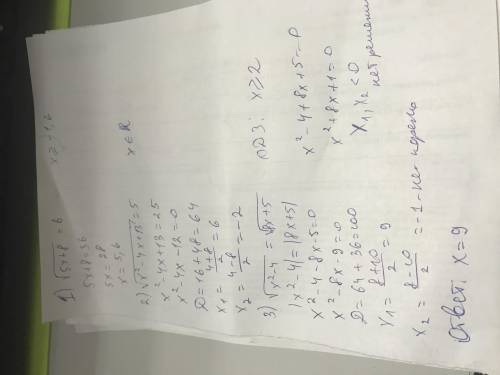 1) √5x+8 = 6 x ≥ -1,6
5x+8=36
5x = 28
x = 5,6
2) √x²-4x+13 = 5 x∈R
x²-4x+13=25
x²-4x-12=0
D=16+48=64
x₁ = (4+8)/2 = 6
x₂ = (4-8)/2 = -2
3) √x²-4 = √8x+5 ОДЗ: x≥2
|x²-4|=|8x+5|
x²-4-8x-5=0 x²-4+8x+5=0
x²-8x-9=0 x²+8x+1=0
D=64+36=100 x₁,x₂<0
x₁ = (8+10)/2 = 9 нет решений
x₂ = (8-10)/2 = -1 - нет корень
Ответ: x=9